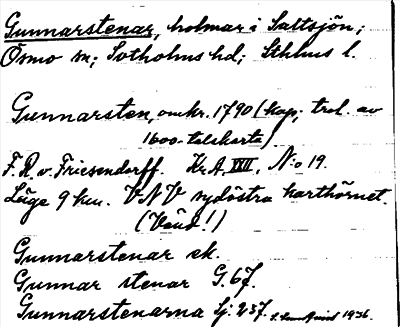 Gunnarstenar, holmar i Saltsjön;
Ösmo sn; Sotholms hd; Sthlms l.
Gunnarsten, omkr. 1790 (kop; trol. av
1600-talskarta)
F. R. v. Friesendorff. Kr.A. XXII, N:o 19.
Läge 9 km. VNV sydöstra karthörnet.
(Vänd!)
Gunnarstenar ek.
Gunnar stenar G. 67.
Gunnarstenarna Lj: 237. 1936.